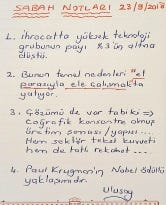 SABAH NOTLARI 23/9/2018
1. İhracatta yüksek teknoloji
grubunun payı %3'ün altına
düştü.
2. Bunun temel nedenleri "el
parasıyla ele çalışmak"ta
yatıyor.
3. Çözümü de var tabiki =>
Coğrafik konsantre olmuş
üretim ponsası / yapısı...
Hem sektör tekil kuvveti
hem de tatlı rekabet...
4. Paul Krugman'ın Nobel ödüllü
yaklaşımıdır.
Ulusoy